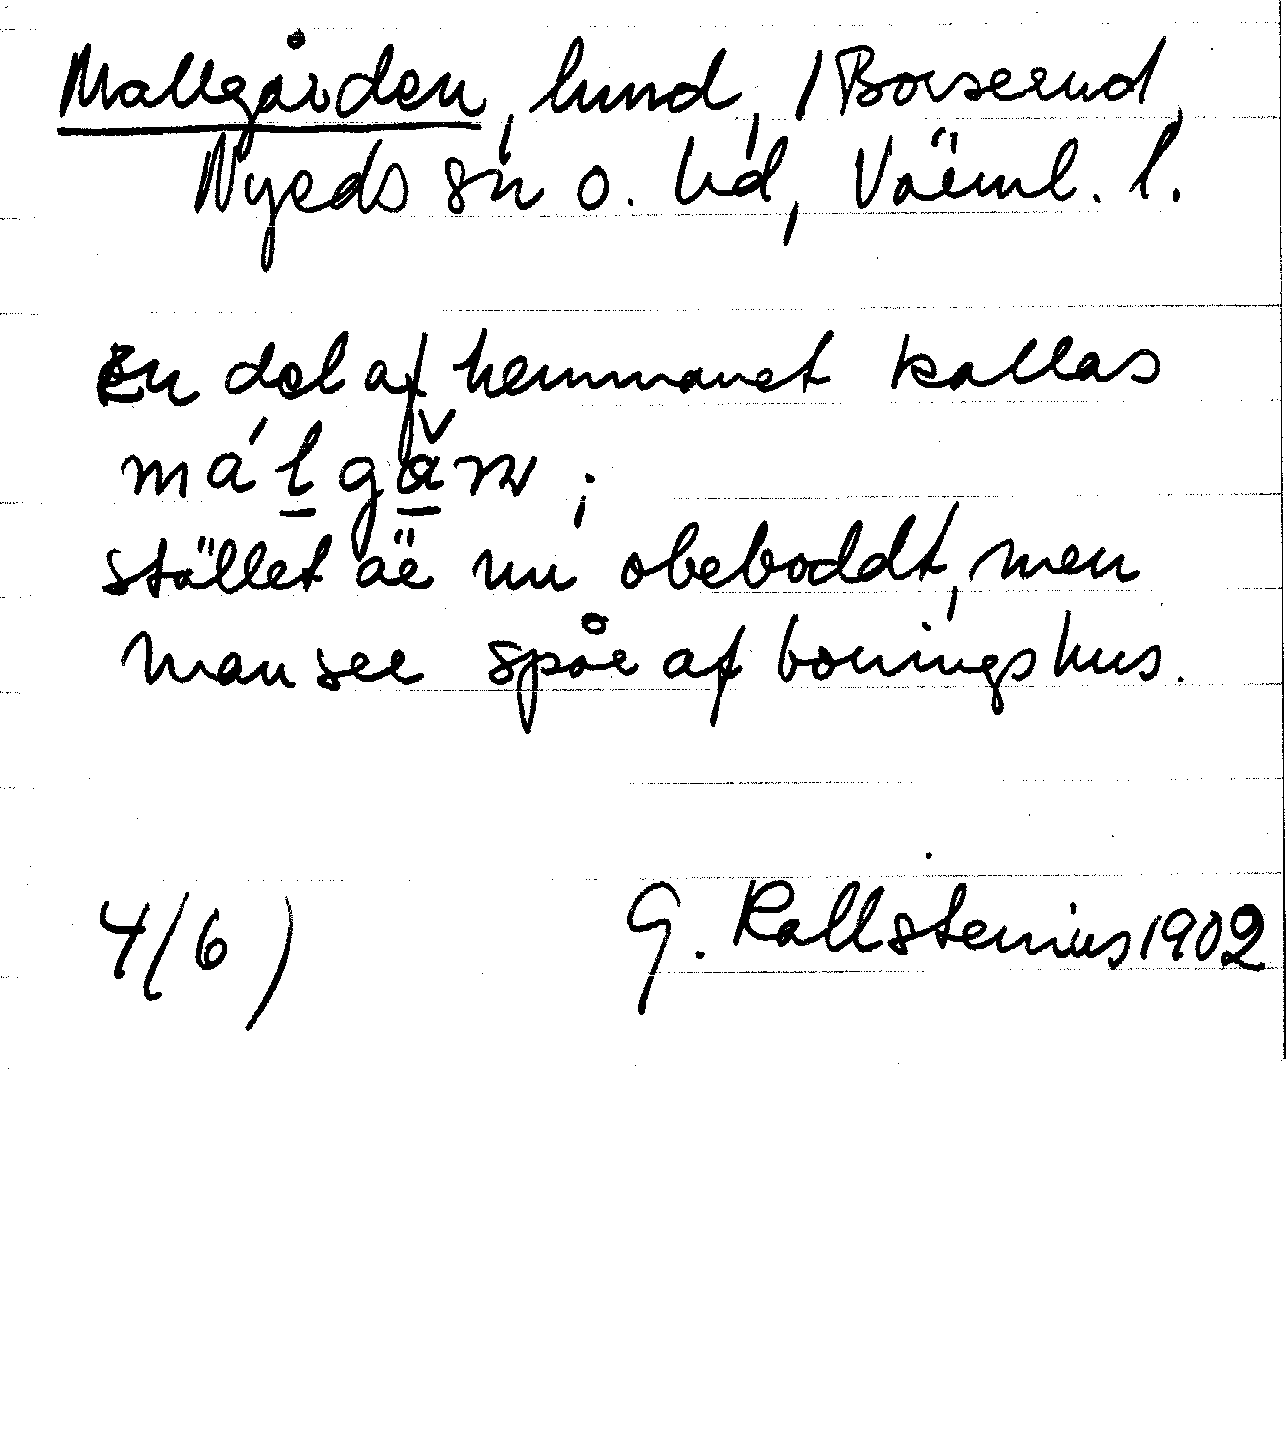 Mallgården, lund, / Borserud,
Nyeds sn o. hd, Värml. l.
En del af hemmanet kallas
stället är nu obeboddt, men
man ser spår af boningshus.
4/6) G. Kallstenius 1902